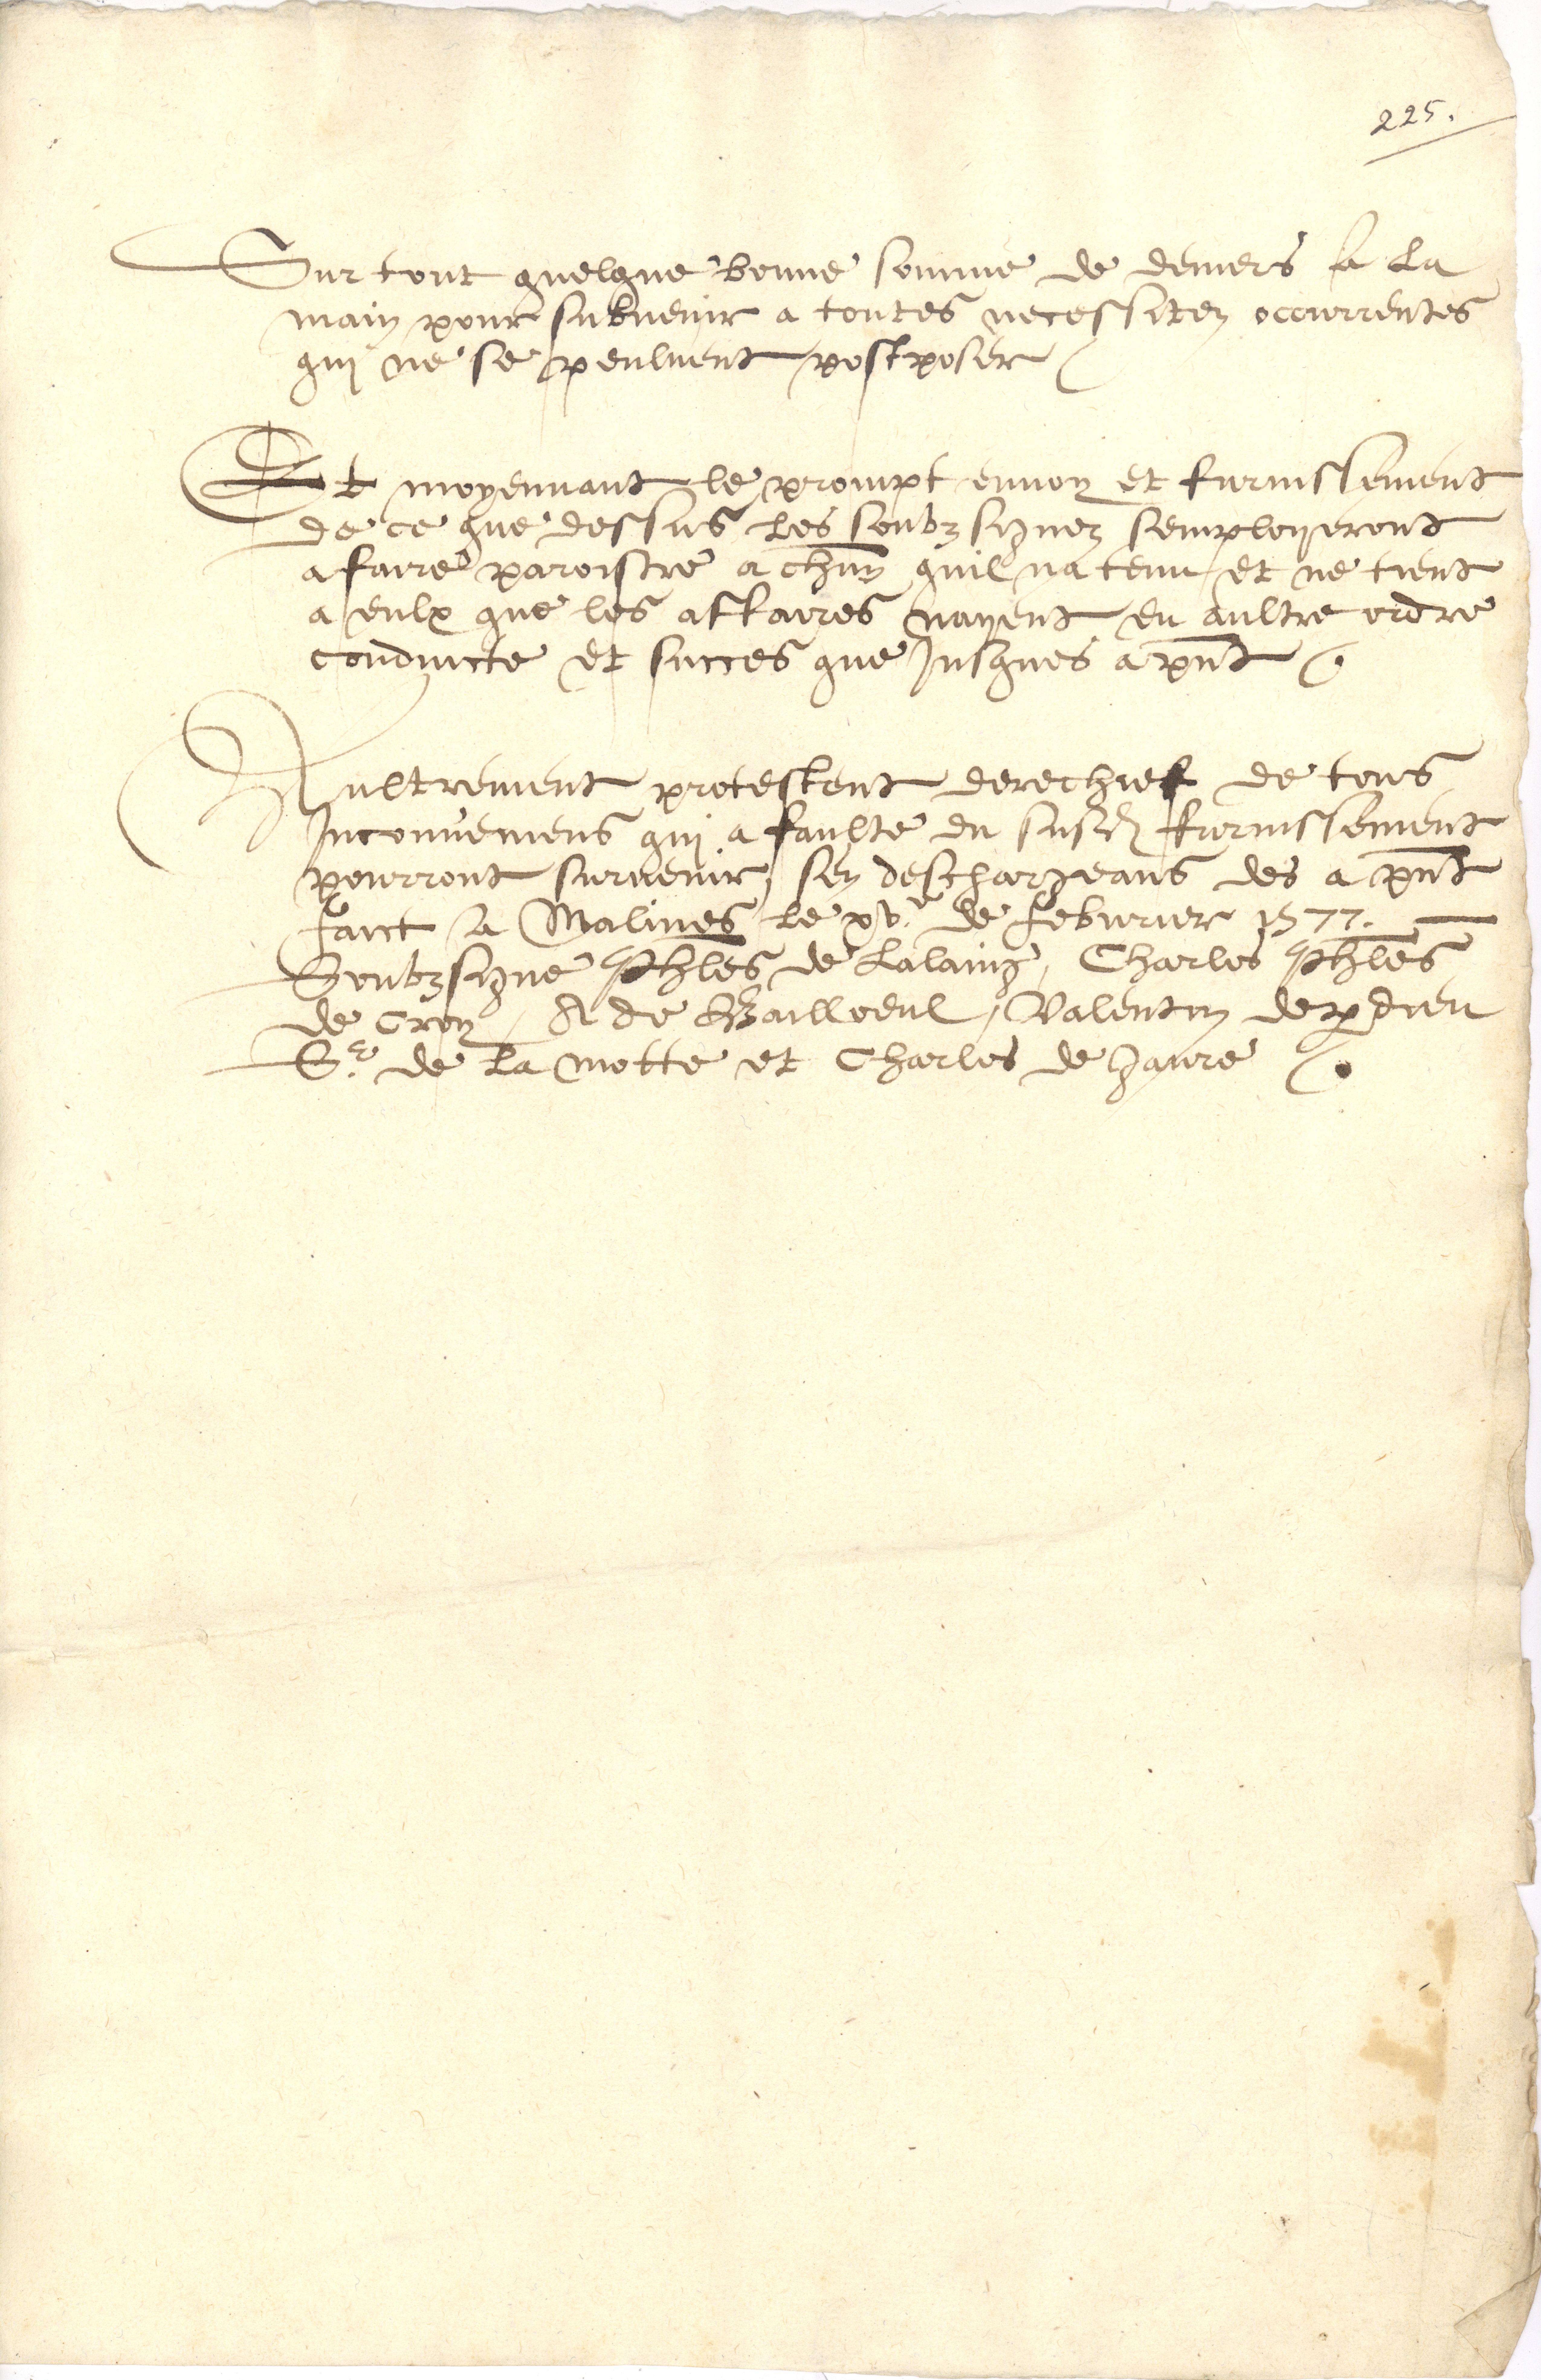 225.
Sur tout quelque bonne somme de deniers a la
main pour subvenir a toutes necessitez occurrentes
qui ne se peulvent postposer
Et moyennant le prompt envoy et furnissement
de ce que dessus les soubzsignez semployeront
a faire paroistre a chūn quil na tenu et ne tient
a eulx que les affaires nayent eu aultre ordre
conduicte et succes que jusques a pn̄t
Aultrement protestent derechief de tous
Inconveniens qui a faulte du susd furnissement
pourront survenir, sen deschargeans des a pn̄t
faict a Malines le xv.e de febvrier 1577.
Soubzsigne Phl̄es de Lalaing, Charles Phl̄es
de Croy, A de Bailloeul, Valentin de pardieu
Sr. de la motte et Charles de